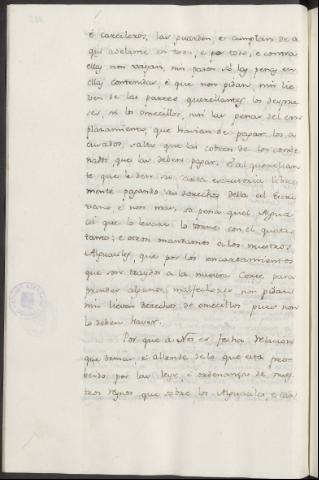 é carceleros, las guarden, e cumplan de a
qui adelante en todo, e por todo, e contra
ellas non vayan, nin pasen, so las penas en
ellas contenidas, é que non pidan, nin lie
ven de las partes querellantes los
ni los omecillos, nin las penas del em
plazamiento, que havian de pagar los a
cusados, salvo que las cobren de los conde
nados, que las deben pagar. E al querellan
te que le den su carta executoria libre
mente pagando sus derechos della al Escri
vano, é non mas, so pena quel Algua
cil que lo levare, lo torne con el quatro
tanto; e otrosi mandamos a los nuestros
Alguaciles, que por los encartamientos
que son traydos a la nuestra Corte, para
prender algunos malfechores non pidan
nin lieven derechos de omecillos pues non
lo deben haver.
Por que a Nos es fecha relacion
que demas, é allende de lo que está pro
beido por las leyes, é ordenanzas de nues
tros Reynos que sobre los Alguaciles, e